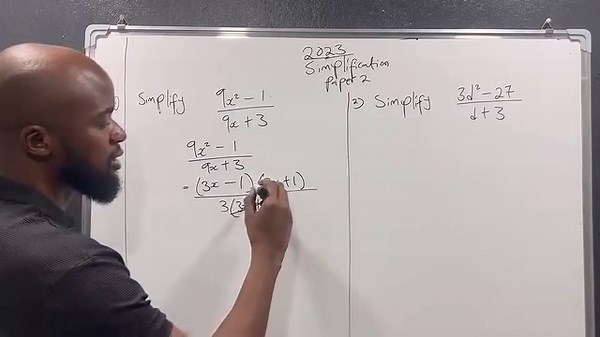 2023
Simplification
Paper 2
) Simplify (9x² - 1)/(9x + 3)
(9x² - 1)/(9x + 3)
= (3x - 1)( +1)
3(3
2) Simplify (3d² - 27)/(d + 3)